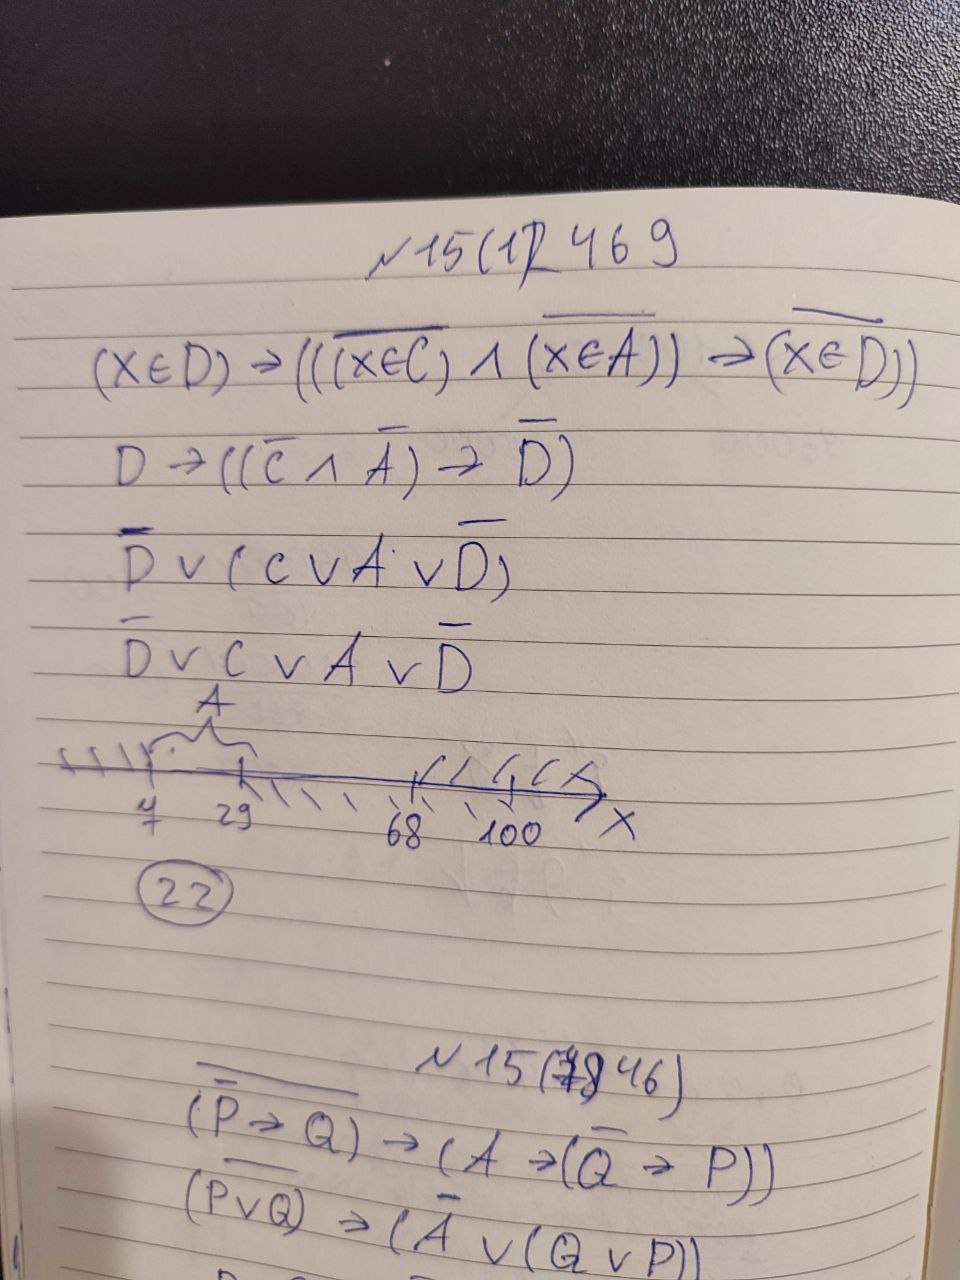 №15(17469
(X∈D) → (((x̅∈̅C̅) ∧ (x̅∈̅A̅)) → (x̅∈̅D̅))
D → ((C̅ ∧ A̅) → D̅)
D̅ ∨ (C ∨ A ∨ D̅)
D̅ ∨ C ∨ A ∨ D̅
A
7 29 68 100 X
22
№15( 46)
(P̅ → Q)̅ → (A → (Q̅ → P))
(P̅∨̅Q̅) → (A̅ ∨ (Q ∨ P))